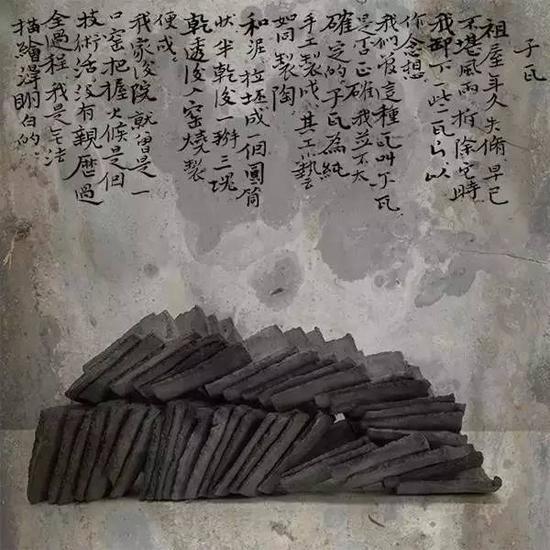 子瓦
祖屋年久失脩,早已
不堪風雨,拆除它時
我卸下一些瓦片以
作念想。
我們管這種瓦叫子瓦
是否正確我並不太
確定的子瓦為純
手工製成,其工藝
如同製陶
和泥,拉坯成一個圓筒
狀半乾後一掰三塊
乾透後入窯燒製
便成。
我家後院就曾是一
口窯把握火候是個
技術活沒有親歷過
全過程我是無法
描繪得明白的。